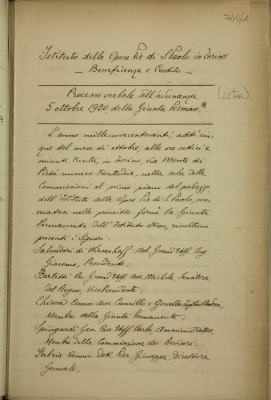 740/1
Istituto delle Opere Pie di S. Paolo in Torino
- Beneficenza e Credito -
Processo verbale dell'adunanza
5 ottobre 1920, della Giunta Perman.te
L'anno millenovecentoventi, addì cin-
que del mese di ottobre, alle ore sedici e
minuti trenta, in Torino, via Monte di
Pietà numero trentadue, nella sala delle
Commissioni al primo piano del palazzo
dell'Istituto delle Opere Pie di S. Paolo, con-
vocatasi nelle prescritte forme la Giunta
Permanente dell'Istituto stesso, risultano
presenti i Signori:
Salvadori di Wiesenhoff Nob. Grand'Uff. Ing.
Giacomo, Presidente;
Bertetti Gr. Grand'Uff. Avv. Michele, Senatore
del Regno, Vice Presidente;
Chiesa Comm. Avv. Camillo e
Membri della Giunta Permanente;
Spingardi Gen. Cav. Uff. Carlo, Amministratore,
Membro della Commissione dei Revisori;
Fabris Comm. Dott. Pier Giuseppe, Direttore
Generale.